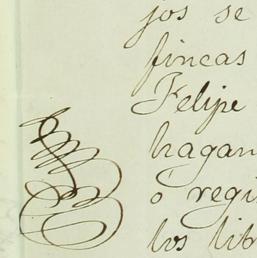 jos se
fincas
Felipe
hagan
ó regi
los lib